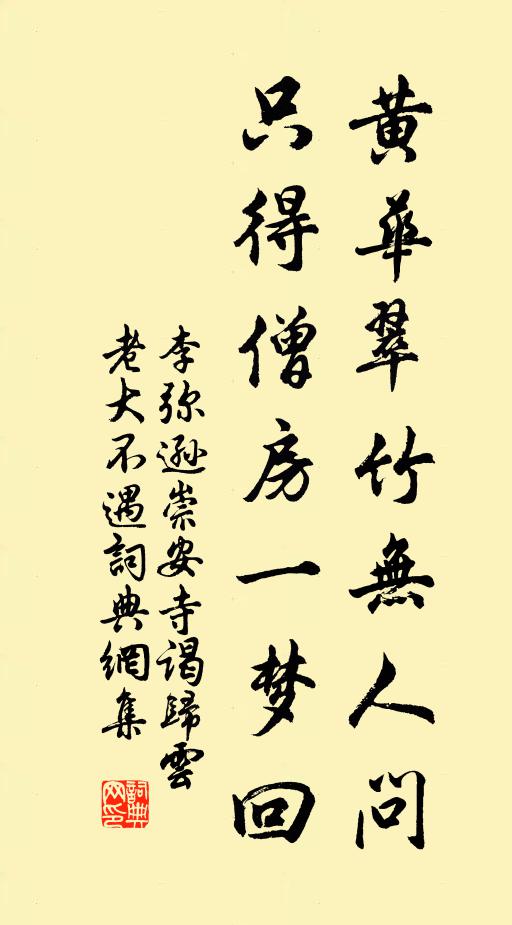 黄華翠竹無人問
只得僧房一梦回
李弥遜崇安寺謁歸雲
老大不遇詞典網集
詞典
网印